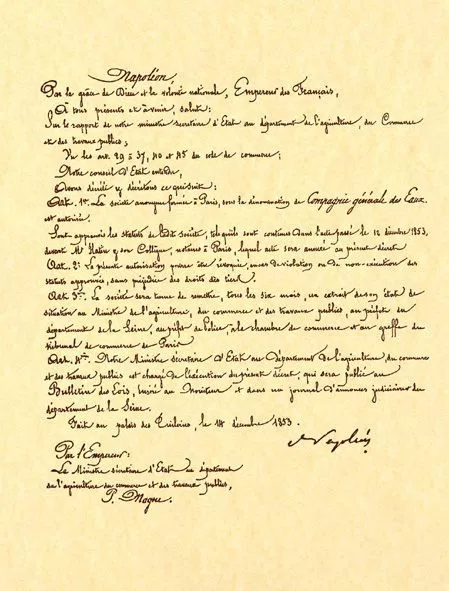 Napoléon,
Par la grâce de Dieu et la volonté nationale, Empereur des Français,
A tous présents et à venir, salut:
Sur le rapport de notre ministre secrétaire d'Etat au département de l'agriculture, du Commerce
et des travaux publics;
Vu les art. 29 à 37, 40 et 45 du code de commerce;
Notre conseil d'Etat entendu,
Avons décrété et décrétons ce qui suit:
Art. 1er. La société anonyme formée à Paris, sous la dénomination de Compagnie générale des Eaux.
est autorisée.
Sont approuvés les statuts de dit société, tels qu'ils sont contenus dans l'acte passé le 12 décembre 1853,
devant Me et son Collègue, notaires à Paris, lequel acte sera annexé au présent décret
Art. 2: La présente autorisation pourra être révoquée, en cas de violation ou de non-exécution des
statuts approuvés, sans préjudice des droits des tiers.
Art. 3e. La société sera tenue de remettre, tous les six mois, un extrait de son état de
situation au Ministre de l'agriculture, du commerce et des travaux publics, au préfet du
département de la Seine, au préfet de Police, à la chambre de commerce et au greffe du
tribunal de commerce de Paris
Art. 4e. Notre Ministre secrétaire d'Etat au Département de l'agriculture, du commerce
et des travaux publics est chargé de l'exécution du présent décret, qui sera publié au
Bulletin des Lois, inséré au Moniteur et dans un journal d'annonces judiciaires du
département de la Seine.
Fait au palais des Tuileries, le 14 décembre 1853.
Napoléon
Par l'Empereur:
Le Ministre secrétaire d'Etat au département
de l'agriculture du commerce et des travaux publics,
P. Magne.